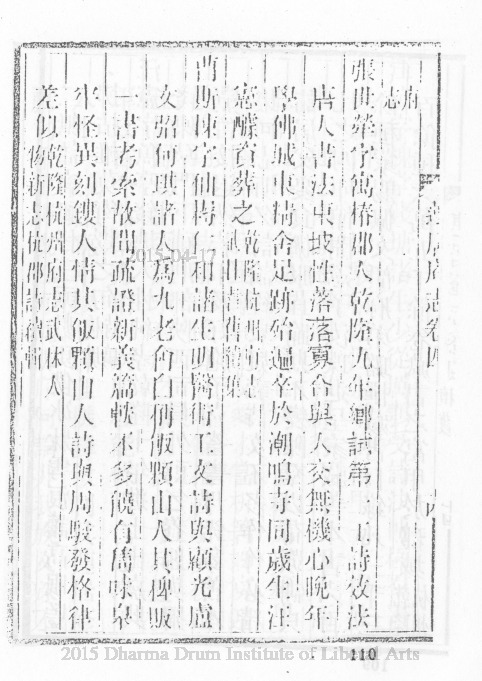 府志
張世犖字寓椿郡人乾隆九年鄉試第一工詩效法
唐人書法東坡性落落寡合與人交無機心晚年
學佛城東精舍足跡殆遍卒於潮鳴寺同歲生汪
憲醵資葬之乾隆杭州府志
曹斯棟字仙栘仁和諸生明醫術工文詩與顧光盧
文弨何琪諸人為九老會自稱飯顆山人其稗販
一書考索故聞疏證新義篇帙不多饒有雋味
怪異刻鏤人情其飯顆山人詩與周駿發格律
差似乾隆杭州府志武林人物新志杭郡詩續輯
志卷四
110
2015-04-17
2015 Dharma Drum Institute of Liberal Arts